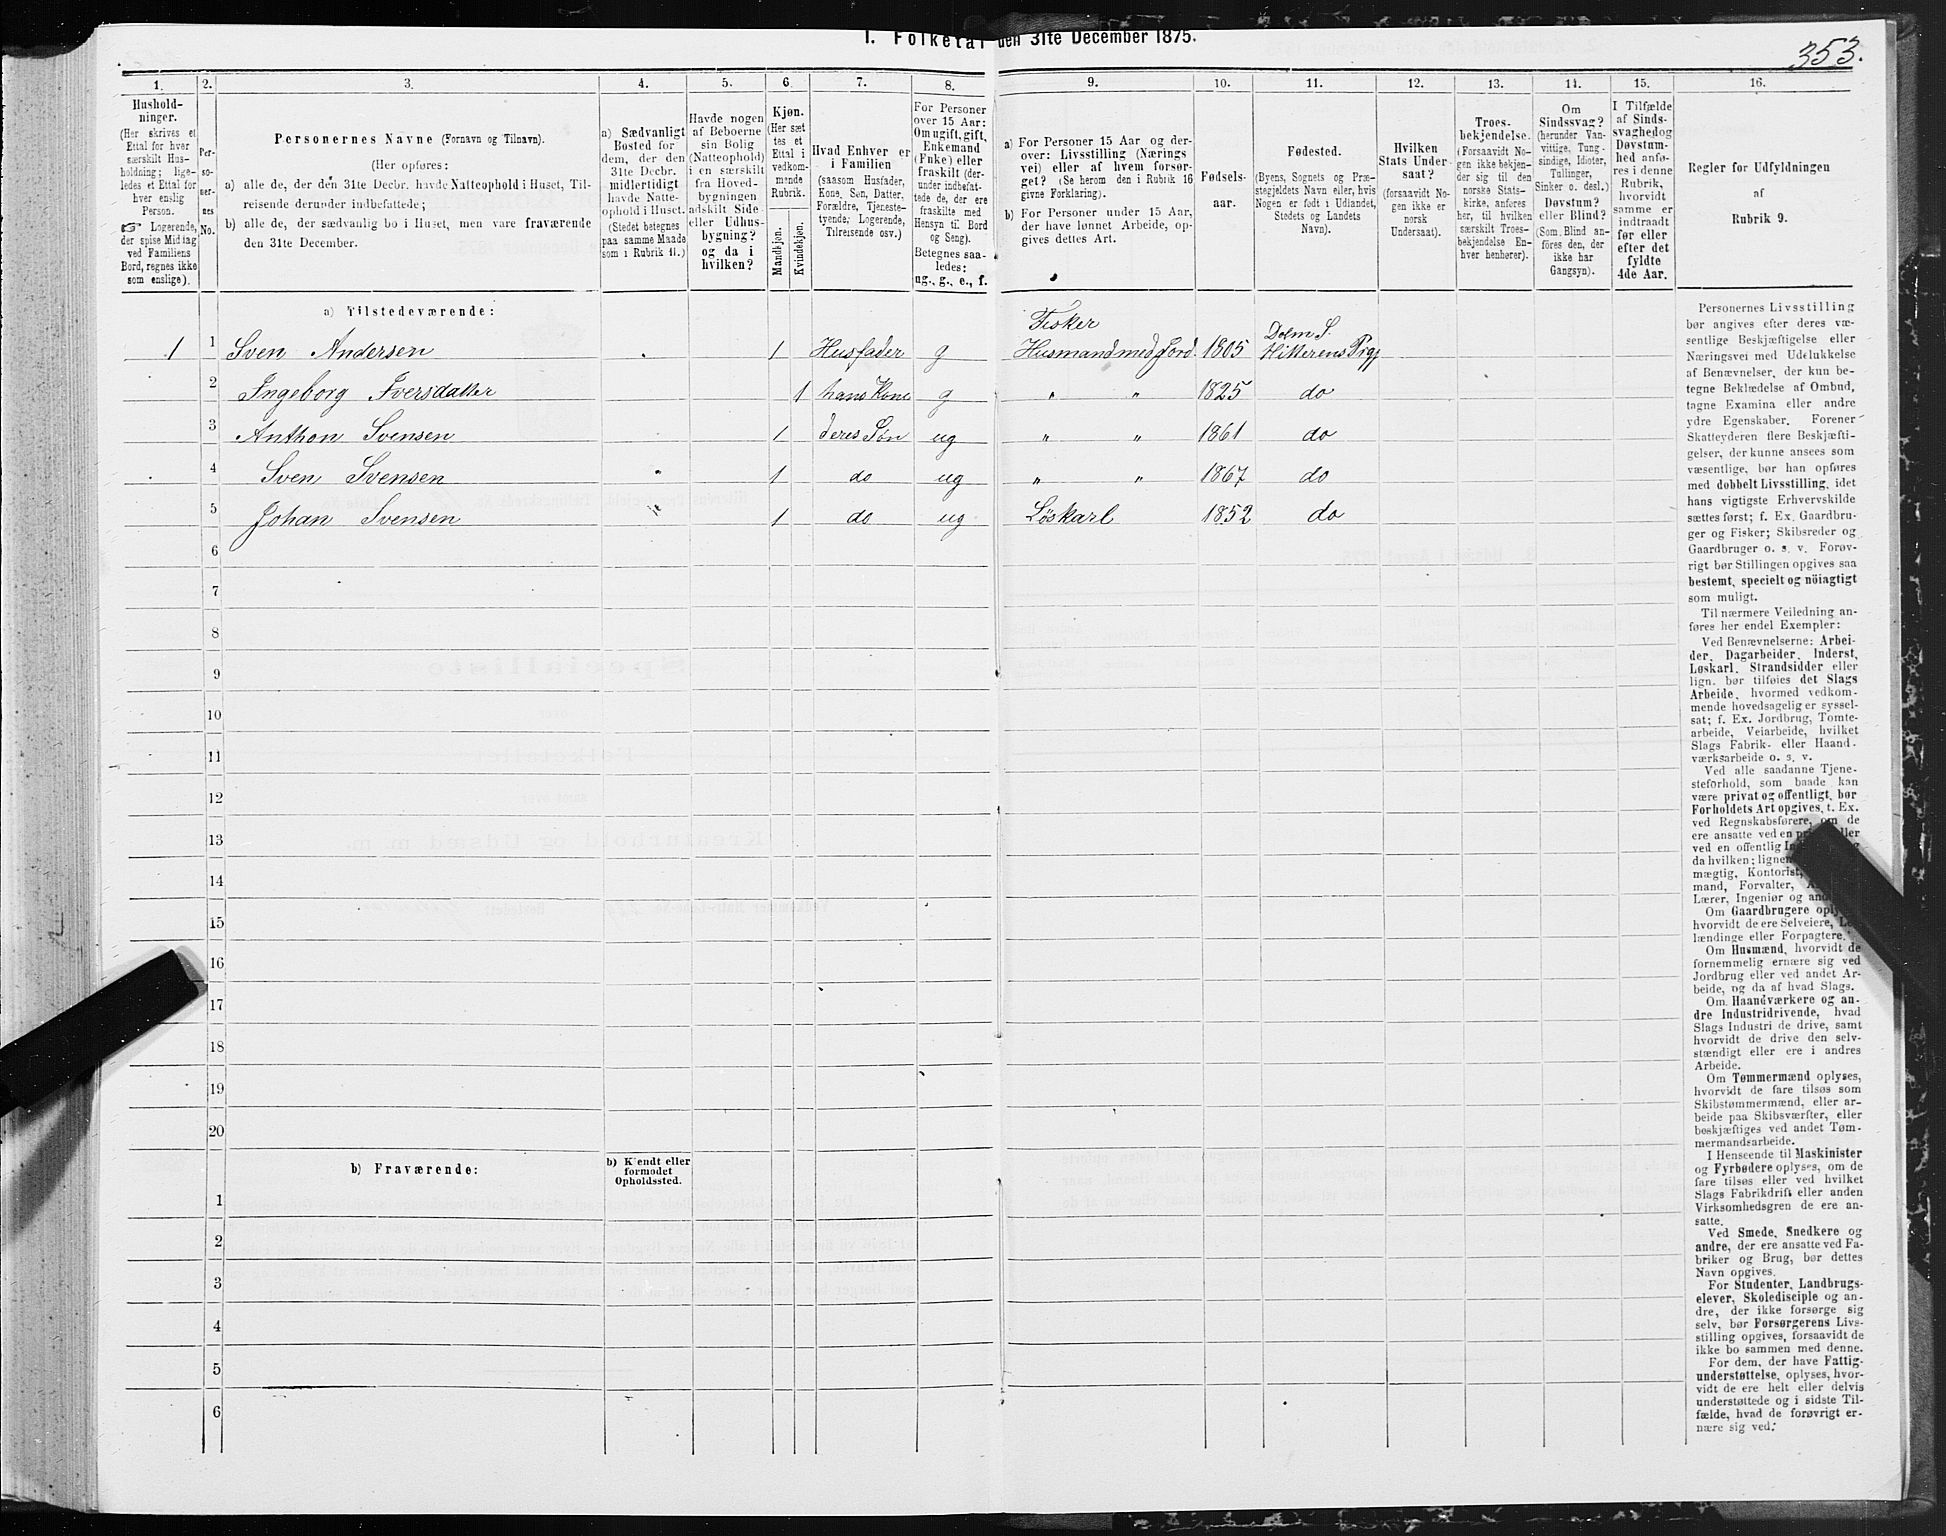 I. Folketal den 31te December 1875.
353.
1.
2.
3.
4.
5.
6.
7.
8.
9.
10.
11.
12.
13.
14.
15.
16.
Hushold-
ninger.
(Her skrives et
Ettal for hver
særskilt Hus-
holdning; lige-
ledes et Ettal for
hver enslig
Person.
☞ Logerende,
der spise Middag
ved Familiens
Bord, regnes ikke
som enslige).
Per-
so-
ner-
nes
No.
Personernes Navne (Fornavn og Tilnavn).
(Her opføres:
a) alle de, der den 31te Decbr. havde Natteophold i Huset, Til-
reisende derunder indbefattede;
b) alle de, der sædvanlig bo i Huset, men vare fraværende
den 31te December.
a) Sædvanligt
Bosted for
dem, der den
31te Decbr.
midlertidigt
havde Natte-
ophold i Huset.
(Stedet betegnes
paa samme Maade
som i Rubrik 11.)
Havde nogen
af Beboerne
sin Bolig
(Natteophold)
i en særskilt
fra Hoved-
bygningen
adskilt Side-
eller Udhus-
bygning?
og da i
hvilken?
Kjøn.
(Her sæt
tes et
Ettal i
vedkom-
mende
Rubrik.
Mandkjøn.
Kvindekjøn.
Hvad Enhver er
i Familien
(saasom Husfader,
Kone, Søn, Datter,
Forældre, Tjeneste-
tyende, Logerende,
Tilreisende osv.)
For Personer
over 15 Aar:
Om ugift, gift,
Enkemand
(Enke) eller
fraskilt (der-
under indbefat-
tede de, der ere
fraskilte med
Hensyn til Bord
og Seng).
Betegnes saa-
ledes:
ug., g., e., f.
a) For Personer 15 Aar og der-
over: Livsstilling (Nærings
vei) eller af hvem forsør-
get? (Se herom den i Rubrik 16
givne Forklaring).
b) For Personer under 15 Aar,
der have lønnet Arbeide, op-
gives dettes Art.
Fødsels-
aar.
Fødested.
(Byens, Sognets og Præ-
stegjeldets Navn eller, hvis
Nogen er født i Udlandet,
Stedets og Landets
Navn).
Hvilken
Stats Under-
saat?
(forsaavidt No-
gen ikke er
norsk
Undersaat).
Troes-
bekjendelse.
(Forsaavidt No-
gen ikke bekjen-
der sig til den
norske Stats-
kirke, anføres
her, til hvilken
særskilt Troes-
bekjendelse En-
hver henhører).
Om
Sindssvag?
(herunder Van-
vittige, Tung-
sindige, Idioter,
Tullinger,
Sinker o. desl.)
Døvstum?
eller Blind?
(Som Blind an-
føres den, der
ikke har
Gangsyn).
I Tilfælde
af Sinds-
svaghed og
Døvstum-
hed anfø-
res i denne
Rubrik,
hvorvidt
samme er
indtraadt
før eller
efter det
fyldte
4de Aar.
Regler for Udfyldningen
af
Rubrik 9.
a) Tilstedeværende:
Fisker
Dolm S.
1 1 Sven Andersen 1 Husfader g Husmand med Jord. 1805 Hitterens Prgj
2 Ingeborg Iversdatter 1 hans Kone g " " 1825 do
3 Anthon Svensen 1 deres Søn ug " " 1861 do
4 Sven Svensen 1 do ug " " 1867 do
5 Johan Svensen 1 do ug Løskarl 1852 do
6
7
8
9
10
11
12
13
14
15
16
17
18
19
20
b) Fraværende:
b) Kjendt eller
formodet
Opholdssted.
1
2
3
4
5
6
Personernes Livsstilling
bør angives efter deres væ-
sentlige Beskjæftigelse eller
Næringsvei med Udelukkelse
af Benævnelser, der kun be-
tegne Beklædelse af Ombud,
tagne Examina eller andre
ydre Egenskaber. Forener
Skatteyderen flere Beskjæfti-
gelser, der kunne ansees som
væsentlige, bør han opføres
med dobbelt Livsstilling, idet
hans vigtigste Erhvervskilde
sættes først; f. Ex. Gaardbru-
ger og Fisker; Skibsreder og
Gaardbruger o. s. v. Forøv-
rigt bør Stillingen opgives saa
bestemt, specielt og nöiagtigt
som muligt.
Til nærmere Veiledning an-
føres her endel Exempler:
Ved Benævnelserne: Arbei-
der, Dagarbeider, Inderst,
Løskarl, Strandsidder eller
lign. bør tilføies det Slags
Arbeide, hvormed vedkom-
mende hovedsagelig er syssel-
sat; f. Ex. Jordbrug, Tomte-
arbeide, Veiarbeide, hvilket
Slags Fabrik- eller Haand-
værksarbeide o. s. v.
Ved alle saadanne Tjene-
steforhold, som baade kan
være privat og offentligt, bør
Forholdets Art opgives, t. Ex.
ved Regnskabsførere, om de
ere ansatte ved en eller
ved en offentlig
da hvilken; lignen
mægtig, Kontorist,
mand, Forvalter,
Lærer, Ingeniør og
Om Gaardbrugere
hvorvidt de ere Selveiere,
lændinge eller Forpagtere.
Om Husmænd, hvorvidt de
fornemmelig ernære sig ved
Jordbrug eller ved andet Ar-
beide, og da af hvad Slags.
Om Haandværkere og an-
dre Industridrivende, hvad
Slags Industri de drive, samt
hvorvidt de drive den selv-
stændigt eller ere i andres
Arbeide.
Om Tømmermænd oplyses,
hvorvidt de fare tilsøs som
Skibstømmermænd, eller ar-
beide paa Skibsværfter, eller
beskjæftiges ved andet Tøm-
mermandsarbeide.
I Henseende til Maskinister
og Fyrbødere oplyses, om de
fare tilsøs eller ved hvilket
Slags Fabrikdrift eller anden
Virksomhedsgren de ere an-
satte.
Ved Smede, Snedkere og
andre, der ere ansatte ved Fa-
briker og Brug, bør dettes
Navn opgives.
For Studenter, Landbrugs-
elever, Skoledisciple og an-
dre, der ikke forsørge sig
selv, bør Forsørgerens Livs-
stilling opgives, forsaavidt de
ikke bo sammen med denne.
For dem, der have Fattig-
understøttelse, oplyses, hvor-
vidt de ere helt eller delvis
understøttede og i sidste Til-
fælde, hvad de forøvrigt er-
nære sig ved.